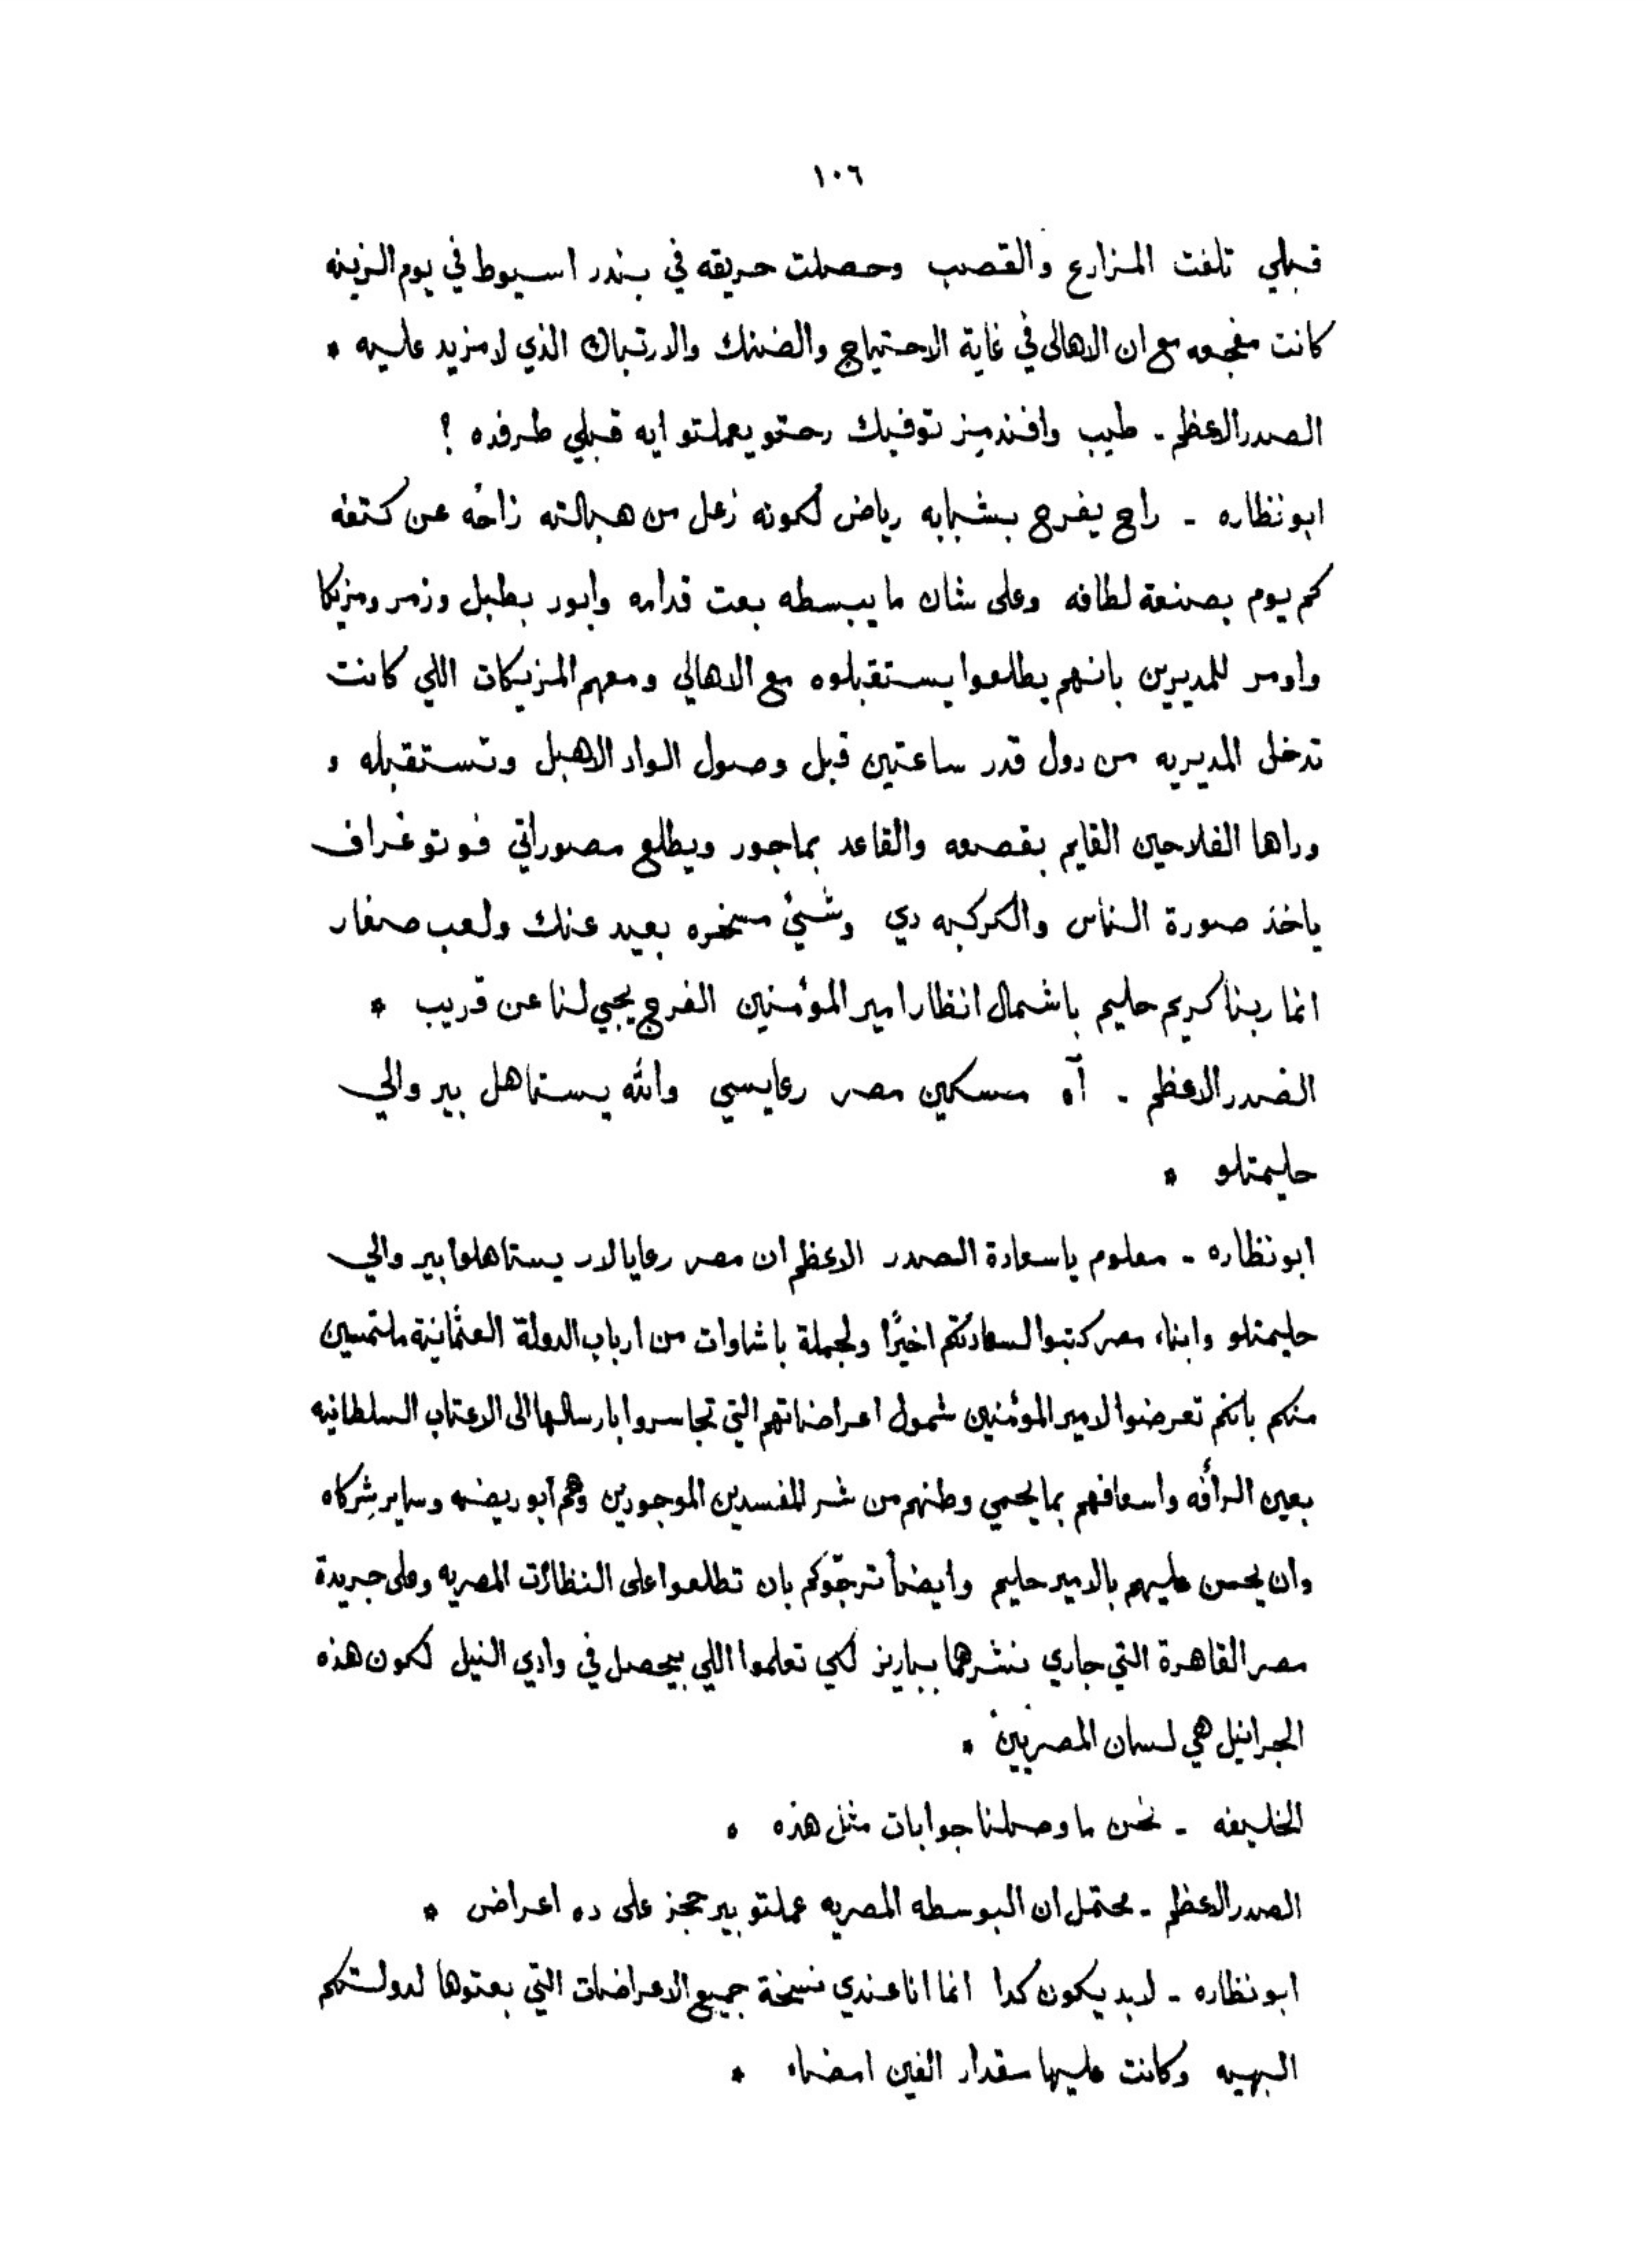 ١٠٦
قبلي تلفت المزارع والقصب وحصلت حريقه في بندر اسيوط في يوم الزينه
كانت مفجعه مع ان الاهالى في غاية الاحتياج والضنك والارتباك الذي لا مزيد عليه *
الصدر الاعظم - طيب وافندميز توفيك رحتو يعملتو ايه قبلي طرفده ؟
ابونظاره - راح يفرح بشبابه رياض لكونه زعل من هبالته زاحه عن كتفه
كم يوم بصنعة لطافه وعلى شان ما يبسطه بعت قدامه وابور بطبل وزمر ومزيكا
واومر للمديرين بانهم يطلعوا يستقبلوه مع الاهالي ومعهم المزيكات اللي كانت
تدخل المديريه من دول قدر ساعتين قبل وصول الواد الاهبل وتستقبله و
وراها الفلاحين القايم بقصعه والقاعد بماجور ويطلع مصوراتي فوتوغراف
ياخذ صورة الناس والكركبه دي وشيئ مسخره بعيد عنك ولعب صغار
انما ربنا كريم حليم باشمال انظار امير المؤمنين الفرج يجي لنا عن قريب *
الصدر الاعظم - آه مسكين مصر رعايسي والله يستاهل بير والي
حليمتلو *
ابونظاره - معلوم ياسعادة الصدر الاعظم ان مصر رعايالار يستاهلوا بير والي
حليمتلو وابناء مصر كتبوا لسعادتكم اخيرًا ولجملة باشاوات من ارباب الدولة العثمانية ملتمسين
منكم بانكم تعرضوا لامير المؤمنين شمول اعراضاتهم التي تجاسروا بارسالها الى الاعتاب السلطانيه
بعين الرأفه واسعافهم بما يحمي وطنهم من شر المفسدين الموجودين وهم ابو ريضه وساير شركاه
وان يحسن عليهم بالامير حليم وايضاً نترجّوكم بان تطلعوا على النظارات المصريه وعلى جريدة
مصر القاهرة التي جاري نشرهما بباريز لكي تعلموا اللي بيحصل في وادي النيل لكون هذه
الجرانيل هي لسان المصريين *
الخليفه - نحن ما وصلنا جوابات مثل هذه *
الصدر الاعظم - محتمل ان البوسطه المصريه عملتو بير حجز على ده اعراض *
ابونظاره - لابد يكون كدا انما انا عندي نسخة جميع الاعراضات التي بعتوها لدولتكم
البهيه وكانت عليها مقدار الفين امضاء *